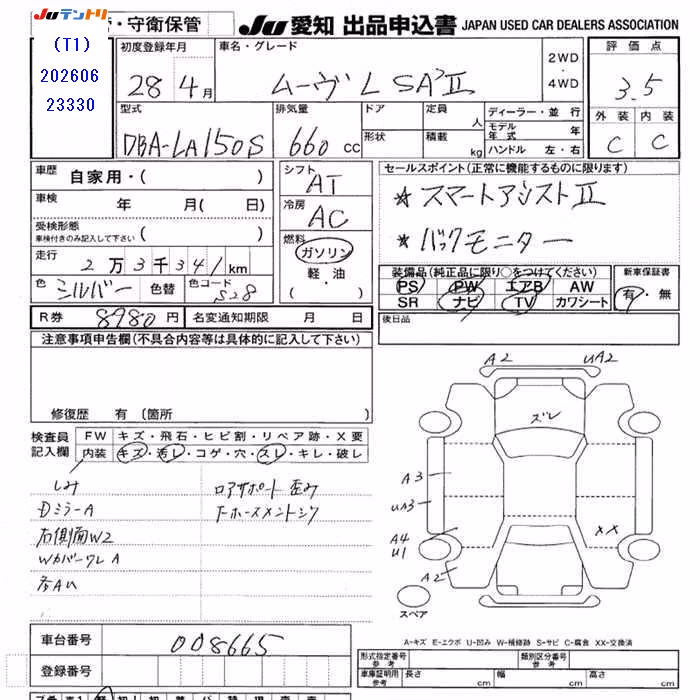 JUテントリ
・守衛保管
JU 愛知 出品申込書 JAPAN USED CAR DEALERS ASSOCIATION
(T1)
202606
23330
初度登録年月
28年4月
車名・グレード
ムーヴ L SAⅡ
2WD
・
4WD
評価点
3.5
外装 内装
C C
型式
DBA-LA150S
排気量
660 cc
ドア
形状
定員 人
積載 kg
ディーラー・並行
モデル年式 年
ハンドル 左・右
車歴
自家用・( )
車検 年 月( 日)
受検形態
車検付きのみ記入して下さい ( )
走行 2万3千341km
色 シルバー 色替 色コード S28
シフト AT
冷房 AC
燃料
ガソリン
軽・油
( ・ )
セールスポイント(正常に機能するものに限ります)
★スマートアシストⅡ
★バックモニター
装備品(純正品に限り○をつけてください)
PS PW エアB AW
SR ナビ TV カワシート
新車保証書
有・無
R券 8980円 名変通知期限 月 日
後日品
注意事項申告欄(不具合内容等は具体的に記入して下さい)
修復歴 有 〔箇所
検査員記入欄
FW キズ・飛石・ヒビ割・リペア跡・X要
内装 キズ・汚レ・コゲ・穴・スレ・キレ・破レ
しみ
Dミラー A
右側面W2
WカバーワレA
多AU
ロアサポート歪み
F-ホースメントシワ
A2 UA2
ズレ
A3
UA3
A4
U1
A2
XX
スペア
A-キズ E-エクボ U-凹み W-補修跡 S-サビ C-腐食 XX-交換済
車台番号 008665
登録番号
形式指定番号
参考
類別区分番号
参考
車庫証明用
参考
長さ cm
幅 cm
高さ cm